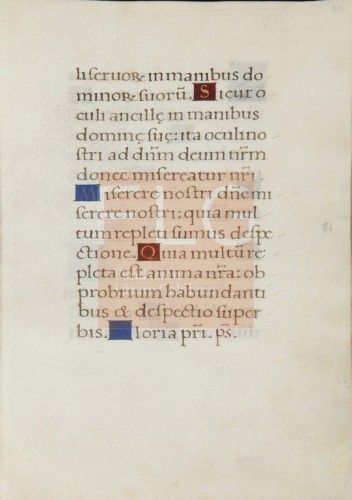 li seruoꝝ in manibus do
minoꝝ suorū. Sicut o
culi ancillę in manibus
dominę suę: ita oculi no
stri ad dn̄m deum nr̄m
donec misereatur nr̄i
Miserere nostri dn̄e mi
serere nostri: quia mul
tum repleti sumus despe
ctione. Quia multū re
pleta est anima nr̄a: ob
probrium habundanti
bus & despectio super
bis. Gloria pr̄i. ps.
FLG